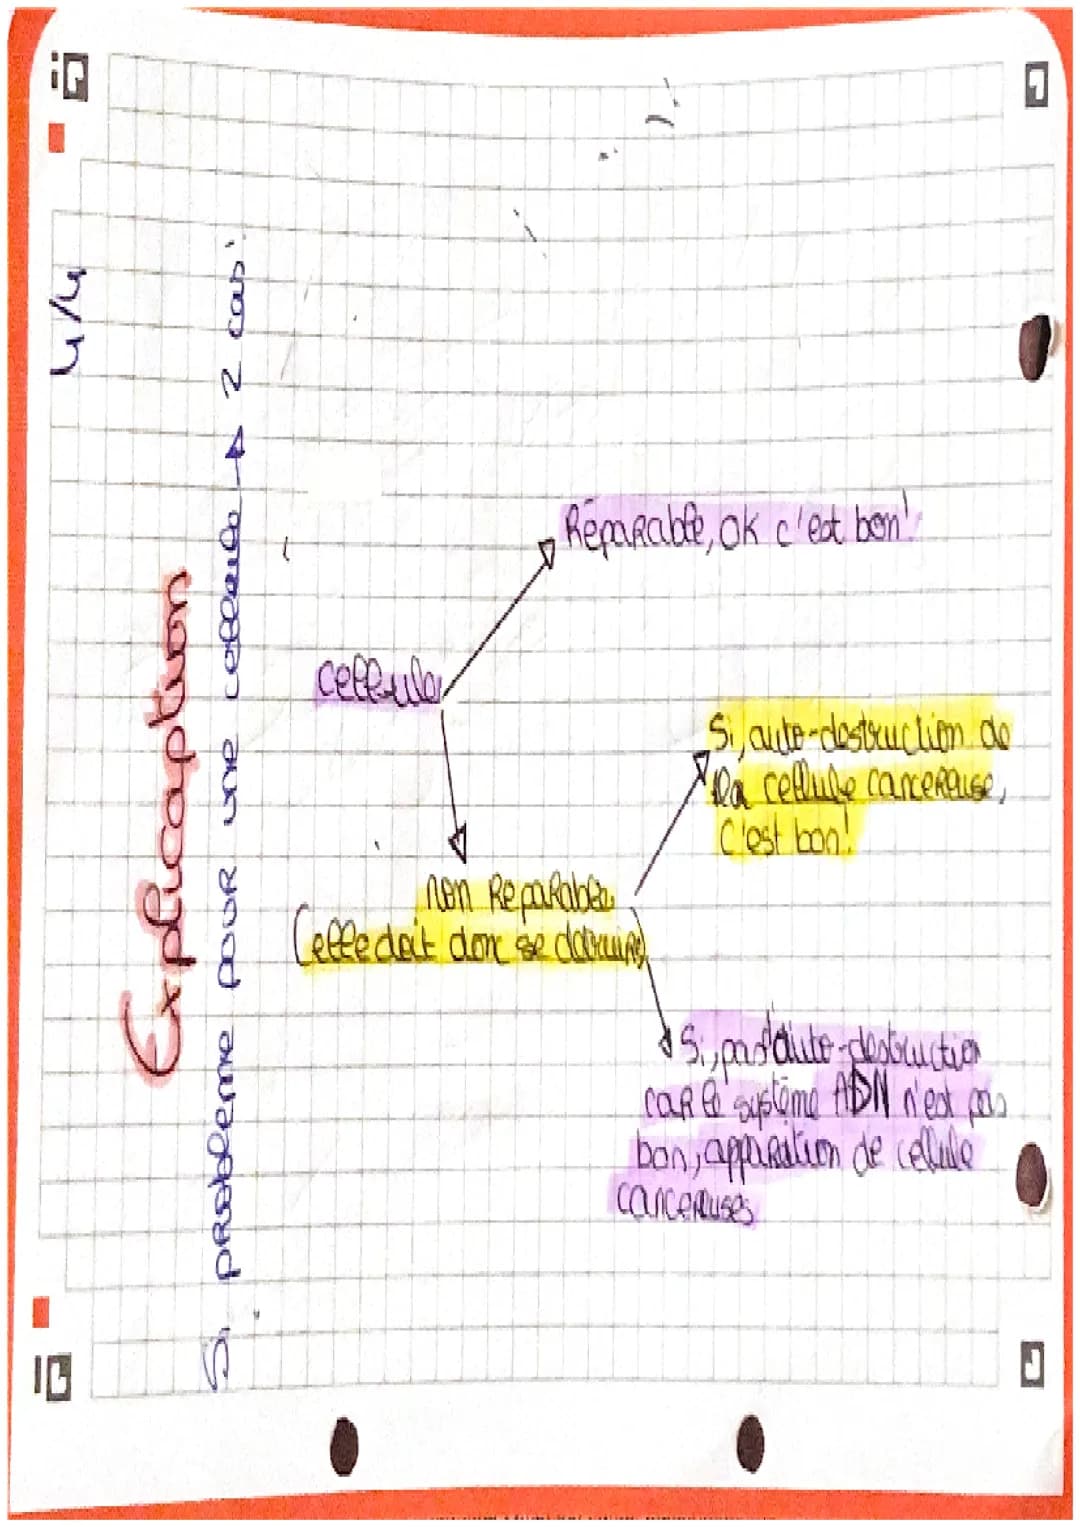 4/4
Explicaption
Si probleme pour une cellule → 2 cas:
Réparable, OK c'est bon!
cellule
Si, auto-destruction de
la cellule cancereuse,
C'est bon!
non Reparable
(elle doit donc se détruire)
Si, pas d'auto-destruction
car le système ADN n'est pas
bon, apparition de cellule
cancereuses